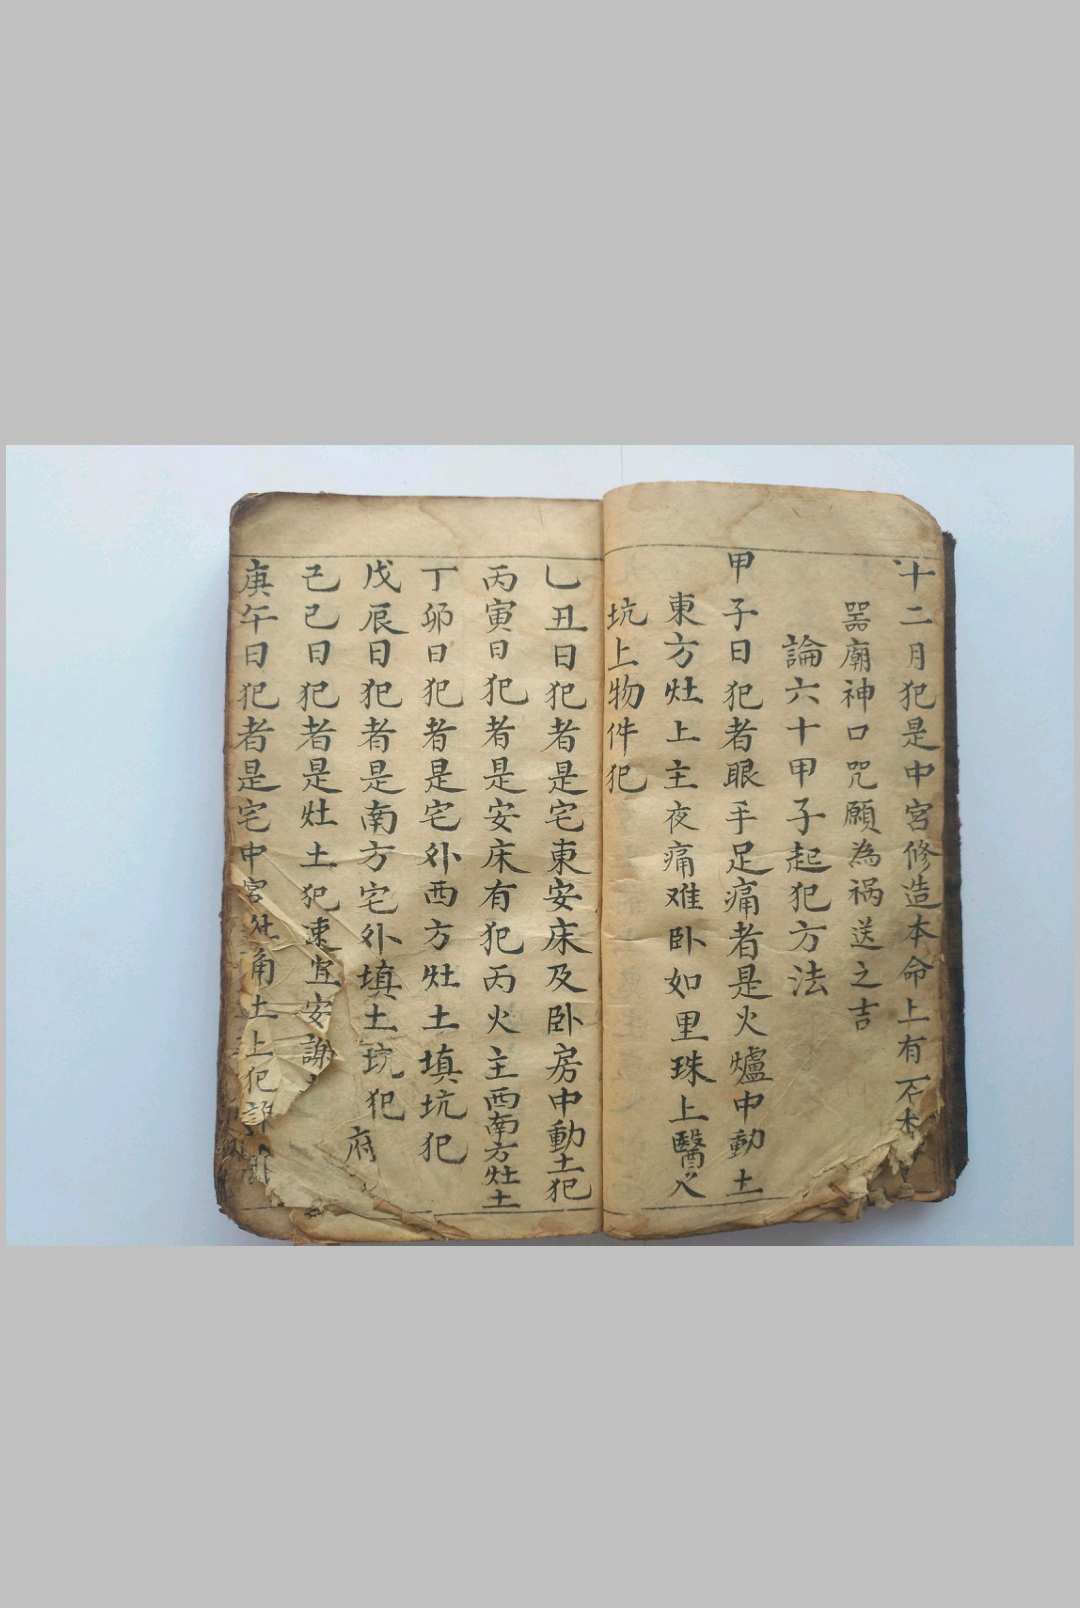 十二月犯是中宮修造本命上有石木
噐廟神口咒願為祸送之吉
論六十甲子起犯方法
甲子日犯者眼手足痛者是火爐中動土
東方灶上主夜痛难卧如里珠上醫人
坑上物件犯
乙丑日犯者是宅東安床及卧房中動土犯
丙寅日犯者是安床有犯丙火主西南方灶土
丁卯日犯者是宅外西方灶土填坑犯
戊辰日犯者是南方宅外填土坑犯
府
己巳日犯者是灶土犯速宜安謝
庚午日犯者是宅中宮灶角土上犯謝